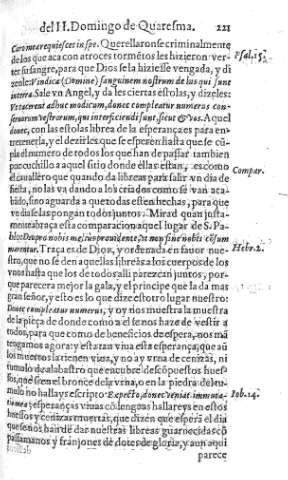 del II. Domingo de Quaresma. 221
Caro mea requiescet in spe. Querellaronse criminalmente
de los que aca con atroces tormētos les hizieron ver-
ter su sangre, para que Dios se la hiziesse vengada, y di
zenle: Vindica (Domine) sanguinem nostrum de his qui sunt
in terra. Sale vn Angel, y da les ciertas estolas, y dizeles:
conseruorum vestrorum, qui interficiendi sunt, sicut & vos. Aquel
donec, con las estolas librea de la esperança es para en-
tretenerla, y el dezirles que se esperen hasta que se cū-
pla el numero de todos los que han de passar tambien
por cuchillo a aquel sitio donde ellas estan, es como
el cauallero que quando da libreas para salir vn dia de
fiesta, no las va dando a los criados como se van aca-
bādo, sino aguarda a que todas esten hechas, para que
vn dia se las pongan todos juntos. Mirad quan justa-
mente abraça esta comparacion aquel lugar de S. Pa-
blo: Deo pro nobis melius prouidente, vt non sine nobis cōsum
marentur. Traça es de Dios, y ordenada en fauor nue-
stro, que no se den aquellas libreas a los cuerpos de los
vnos hasta que los de todos alli parezcan juntos, por-
que parecera mejor la gala, y el principe que la da mas
gran señor, y esto es lo que dize estotro lugar nuestro:
Donec compleatur numerus, y oy nos muestra la muestra
de la pieça de donde como a el se nos haze de vestir a
todos, para que como de beneficios de espera, nos mā
tengamos agora: y esta tan viua esta esperança, que aū
los muertos la tienen viua, y no ay vrna de cenizas, ni
tumulo de alabastro que encubre descōpuestos hues-
sos, que si en el bronce de la vrna, o en la piedra del tu-
mulo no hallays escripto: Expecto, donec veniat immuta-
tio mea; esperanças viuas cō lenguas hallareys en estos
huessos y cenizas muertas, que dizen que esperā el dia
que se nos han de dar nuestras libreas guarnecidas cō
passamanos y franjones de dotes de gloria, y aun aqui
parece
Psal.15.
Compar.
Hebr.2.
Iob.14.